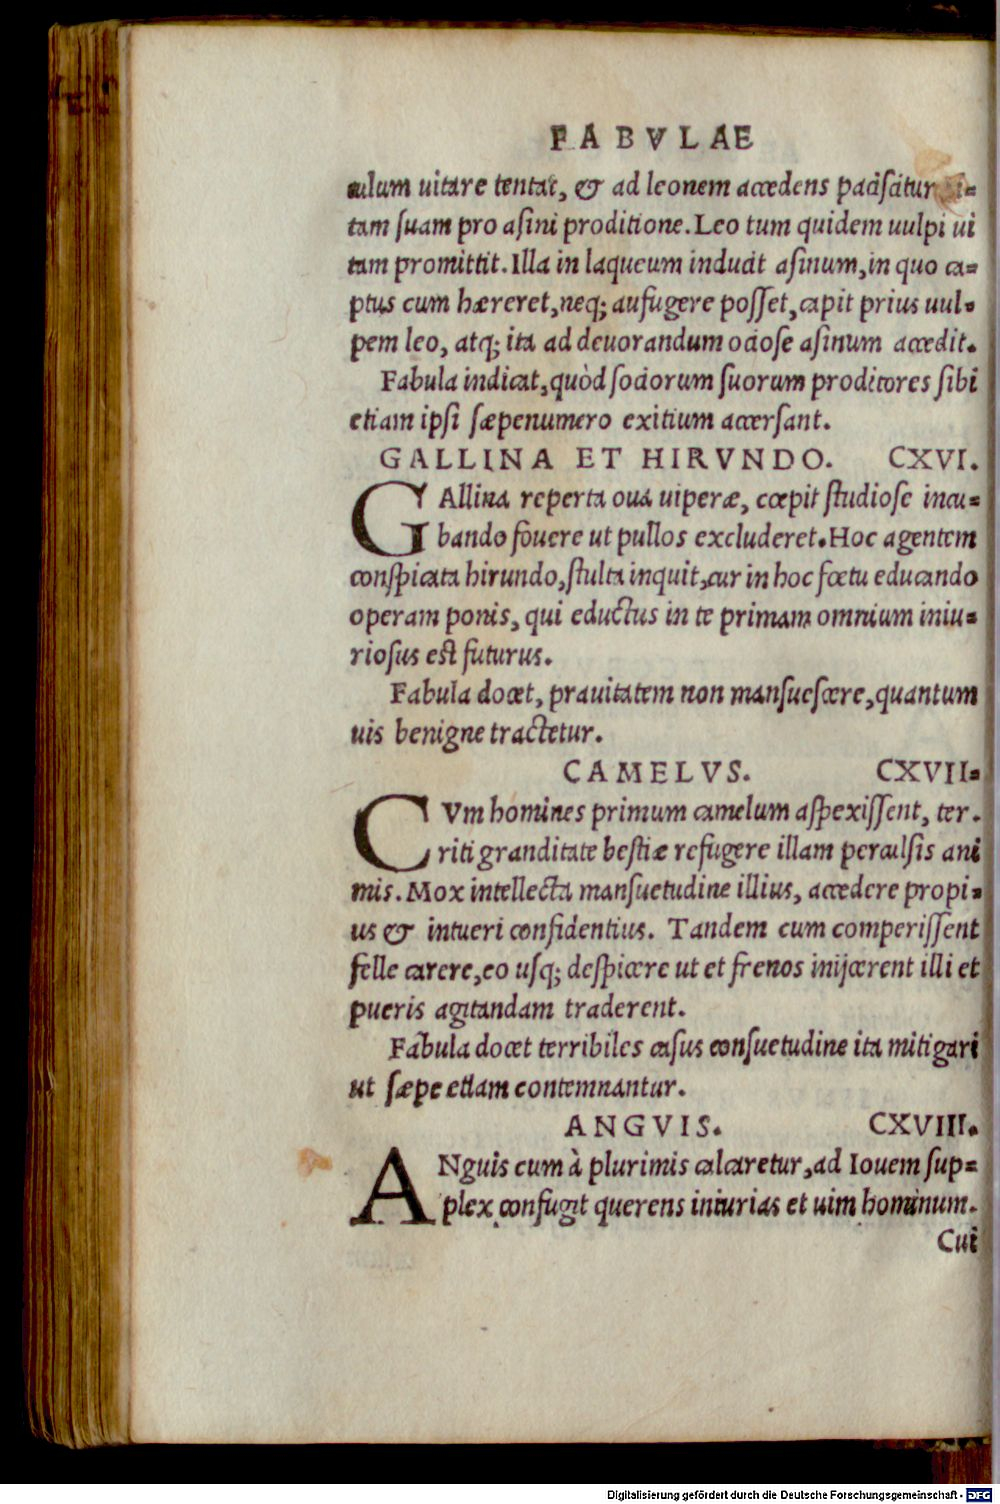 FABVLAE
culum uitare tentat, & ad leonem accedens paciscitur ui-
tam suam pro asini proditione. Leo tum quidem uulpi ui
tam promittit. Illa in laqueum inducit asinum, in quo ca-
ptus cum hæreret, neq; aufugere posset, capit prius uul-
pem leo, atq; ita ad deuorandum ociose asinum accedit.
Fabula indicat, quòd sociorum suorum proditores sibi
etiam ipsi sæpenumero exitium accersant.
GALLINA ET HIRVNDO. CXVI.
GAllina reperta oua uiperæ, cœpit studiose incu-
bando fouere ut pullos excluderet. Hoc agentem
conspicata hirundo, stulta inquit, cur in hoc fœtu educando
operam ponis, qui eductus in te primam omnium iniu-
riosus est futurus.
Fabula docet, prauitatem non mansuescere, quantum
uis benigne tractetur.
CAMELVS. CXVII-
CVm homines primum camelum aspexissent, ter-
riti granditate bestiæ refugere illam perculsis ani
mis. Mox intellecta mansuetudine illius, accedere propi-
us & intueri confidentius. Tandem cum comperissent
felle carere, eo usq; despicere ut et frenos inijcerent illi et
pueris agitandam traderent.
Fabula docet terribiles casus consuetudine ita mitigari
ut sæpe etiam contemnantur.
ANGVIS. CXVIII.
ANguis cum à plurimis calcaretur, ad Iouem sup-
plex confugit querens iniurias et uim hominum.
Cui
Digitalisierung gefördert durch die Deutsche Forschungsgemeinschaft - DFG